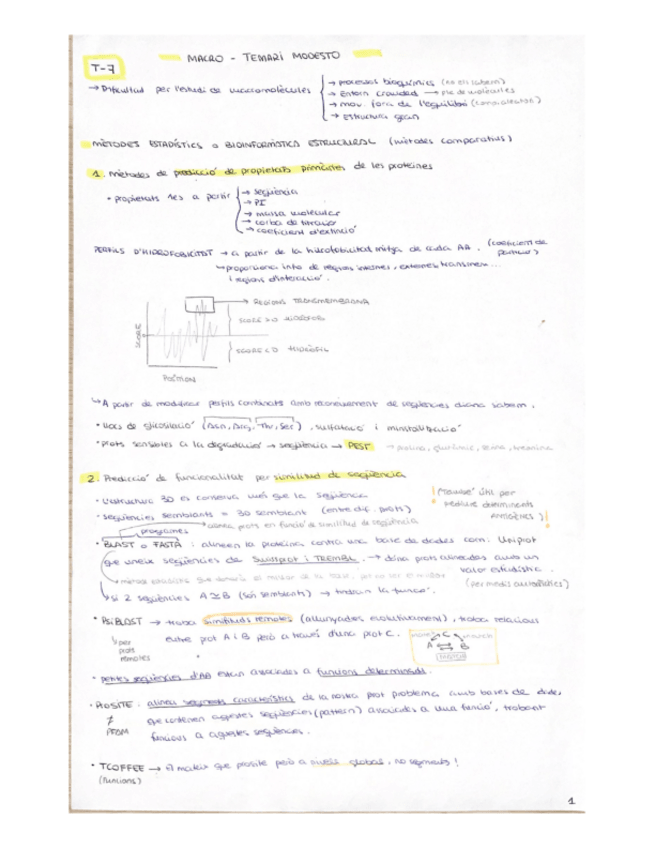 MACRO - TEMARI MODESTO
T-7
→ Dificultat per l'estudi de macromolècules
→ processos bioquímics (no els sabem)
→ Entorn crowded → ple de molècules
→ mov. fora de l'equilibri
→ Estructura gran
MÈTODES ESTADÍSTICS o BIOINFORMÀTICA ESTRUCTURAL (mètodes comparatius)
1. Mètodes de predicció de propietats primàries de les proteïnes
• propietats 1es a partir
→ seqüència
→ PI
→ massa molecular
→ corba de titració
→ coeficient d'extinció
PERFILS D'HIDROFOBICITAT → a partir de la hidrofobicitat mitja de cada AA. (coeficient de
partició)
↳ proporciona info de regions internes, externes, transmem...
i regions d'interacció.
→ REGIONS TRANSMEMBRANA
SCORE
SCORE > 0 HIDRÒFOB
SCORE < 0 HIDRÒFIL
POSITION
↳ A partir de modificar perfils combinats amb reconeixement de seqüències diana sabem.
• llocs de glicosilació (Asn, Arg, Thr, Ser), sulfatació i miristilització
• prots sensibles a la degradació → seqüència → PEST → prolina, glutàmic, serina, treonina
2. Predicció de funcionalitat per similitud de seqüència
• L'estructura 3D es conserva més que la seqüència
• seqüències semblants = 3D semblant (entre dif. prots)
(També útil per
predir determinants
antigènics)!
programes
alinea prots en funció de similitud de seqüència
• BLAST o FASTA: alineen la proteïna contra una base de dades com: Uniprot
que uneix seqüències de Swissprot i TREMBL. → dóna prots alineades amb un
valor estadístic.
(per medis automàtics)
↳ si 2 seqüències A ≅ B (són semblants) → tindran la funció.
• PSIBLAST → troba similituds remotes (allunyades evolutivament), troba relacions
entre prot A i B però a través d'una prot C.
↳ per
prots
remotes
C
A ⇆ B
• petites seqüències d'AA estan associades a funcions determinades.
• PROSITE: alinea segments característics de la nostra prot problema amb bases de dades
que contenen aquestes seqüències (pattern) associades a una funció, trobant
funcions a aquestes seqüències.
≠
• TCOFFEE → El mateix que prosite però a nivells globals, no segments!
(funcions)
1